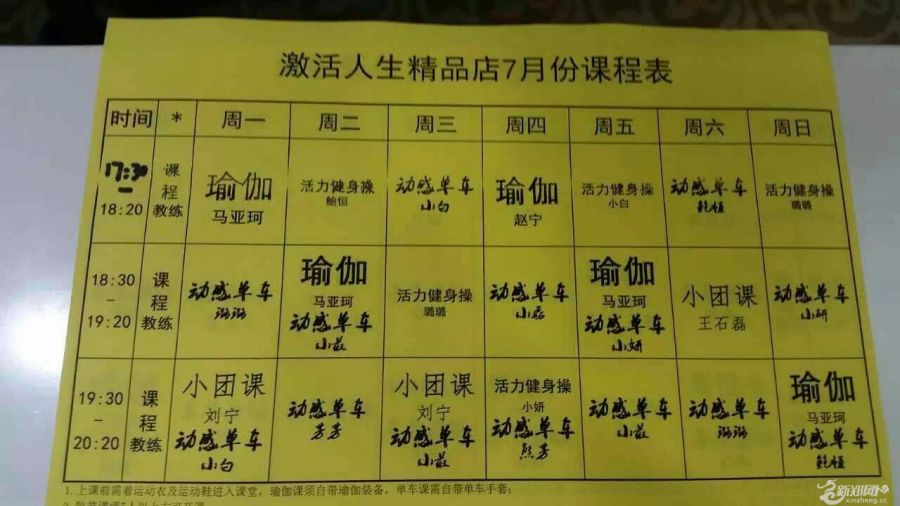 激活人生精品店7月份课程表
时间 * 周一 周二 周三 周四 周五 周六 周日
17:30
-
18:20
课程
教练
瑜伽
马亚珂
活力健身操
鲍恒
动感单车
小白
瑜伽
赵宁
活力健身操
小白
动感单车
鲍恒
活力健身操
璐璐
18:30
-
19:20
课程
教练
动感单车
瑜伽
马亚珂
动感单车
活力健身操
璐璐
动感单车
小磊
瑜伽
马亚珂
动感单车
小妍
小团课
王石磊
动感单车
小研
19:30
-
20:20
课程
教练
小团课
刘宁
动感单车
小白
动感单车
芳芳
小团课
刘宁
动感单车
活力健身操
小妍
动感单车
动感单车
动感单车
瑜伽
马亚珂
动感单车
鲍恒
1. 上课前需着运动衣及运动鞋进入课堂，瑜伽课须自带瑜伽装备，单车课需自带单车手套；
新郑网
xinzheng.cn